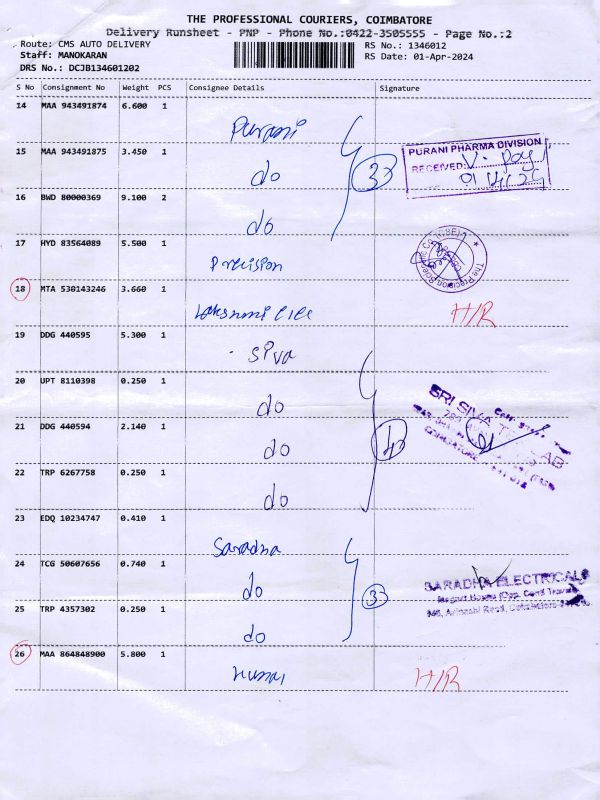 THE PROFESSIONAL COURIERS, COIMBATORE
Delivery Runsheet - PNP - Phone No.:0422-3505555 - Page No.:2
Route: CMS AUTO DELIVERY
RS No.: 1346012
Staff: MANOKARAN
RS Date: 01-Apr-2024
DRS No.: DCJB134601202
S No Consignment No Weight PCS Consignee Details Signature
14 MAA 943491874 6.600 1 Purani
15 MAA 943491875 3.450 1 do
3
PURANI PHARMA DIVISION
RECEIVED:
16 BWD 80000369 9.100 2 do
17 HYD 83564089 5.500 1 Precision
18 MTA 530143246 3.660 1 H/R
19 DDG 440595 5.300 1 Siva
20 UPT 8110398 0.250 1 do
SRI SIVA
21 DDG 440594 2.140 1 do
4
22 TRP 6267758 0.250 1 do
23 EDQ 10234747 0.410 1 Saradha
24 TCG 50607656 0.740 1 do
3
SARADHA ELECTRICALS
25 TRP 4357302 0.250 1 do
26 MAA 864848900 5.800 1 H/R